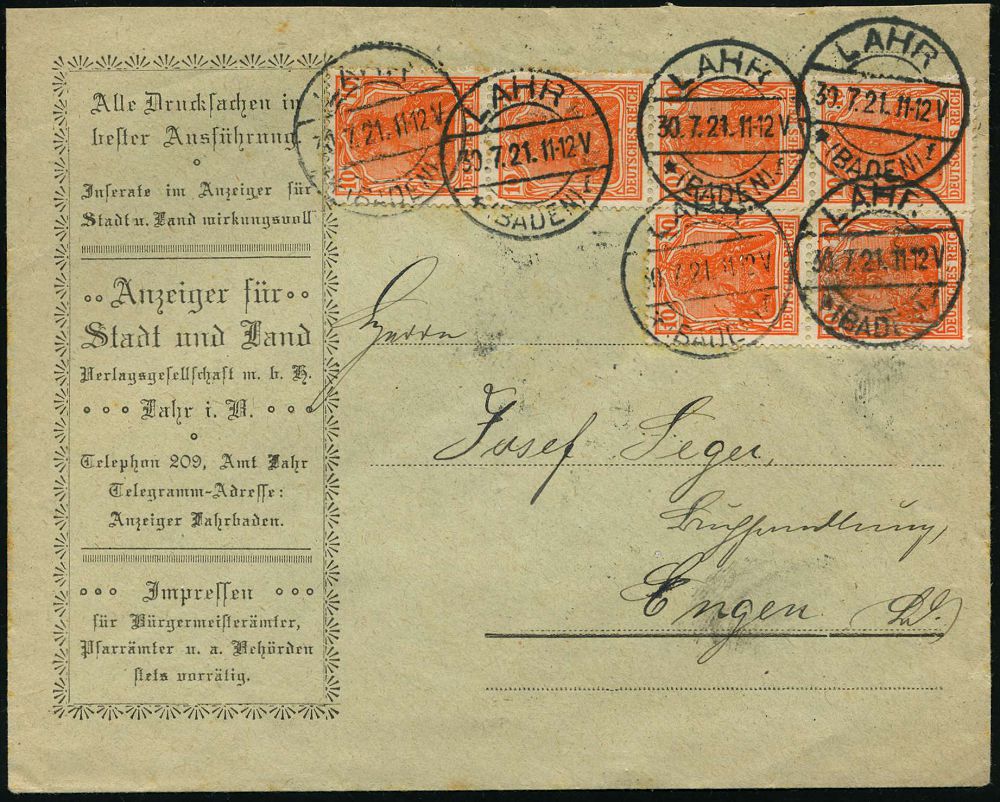 Alle Drucksachen in
bester Ausführung
Inserate im Anzeiger für
Stadt u. Land wirkungsvoll
Anzeiger für
Stadt und Land
Verlagsgesellschaft m. b. H.
Lahr i. B.
Telephon 209, Amt Lahr
Telegramm-Adresse:
Anzeiger Lahrbaden.
Impressen
für Bürgermeisterämter,
Pfarrämter u. a. Behörden
stets vorrätig.
LAHR
7.21.11-12V
(BADEN)
10
LAHR
30.7.21.11-12V
*(BADEN) f
10
DEUTSCHES REICH
LAHR
30.7.21.11-12V
*(BADEN) f
10
DEUTSCHES REICH
LAHR
30.7.21.11-12V
*(BADEN) f
DEUTSCHES REICH
LAHR
30.7.21.11-12V
*(BADEN) f
10
DEUTSCHES REICH
LAHR
30.7.21.11-12V
*(BADEN) f
DEUTSCHES REICH
Herrn
Josef Seger,
Buchhandlung,
Engen